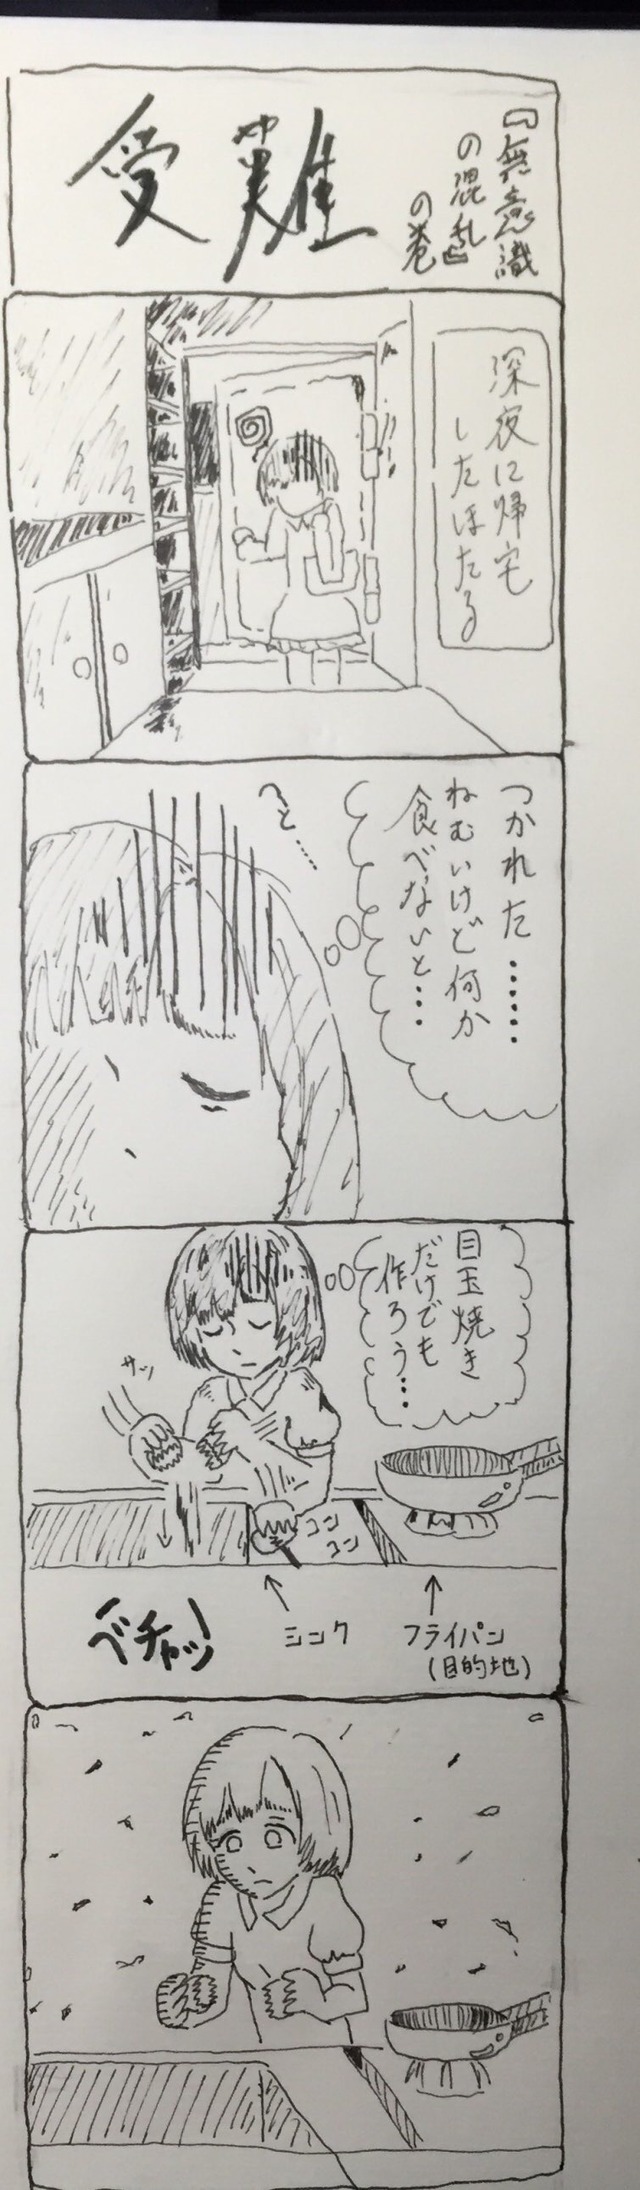 受難
『無意識
の混乱』
の巻
深夜に帰宅
したほたる
つかれた……
ねむいけど何か
食べないと…
へと……
目玉焼き
だけでも
作ろう…
サッ
コン
コン
ベチャッ
シンク
フライパン
(目的地)